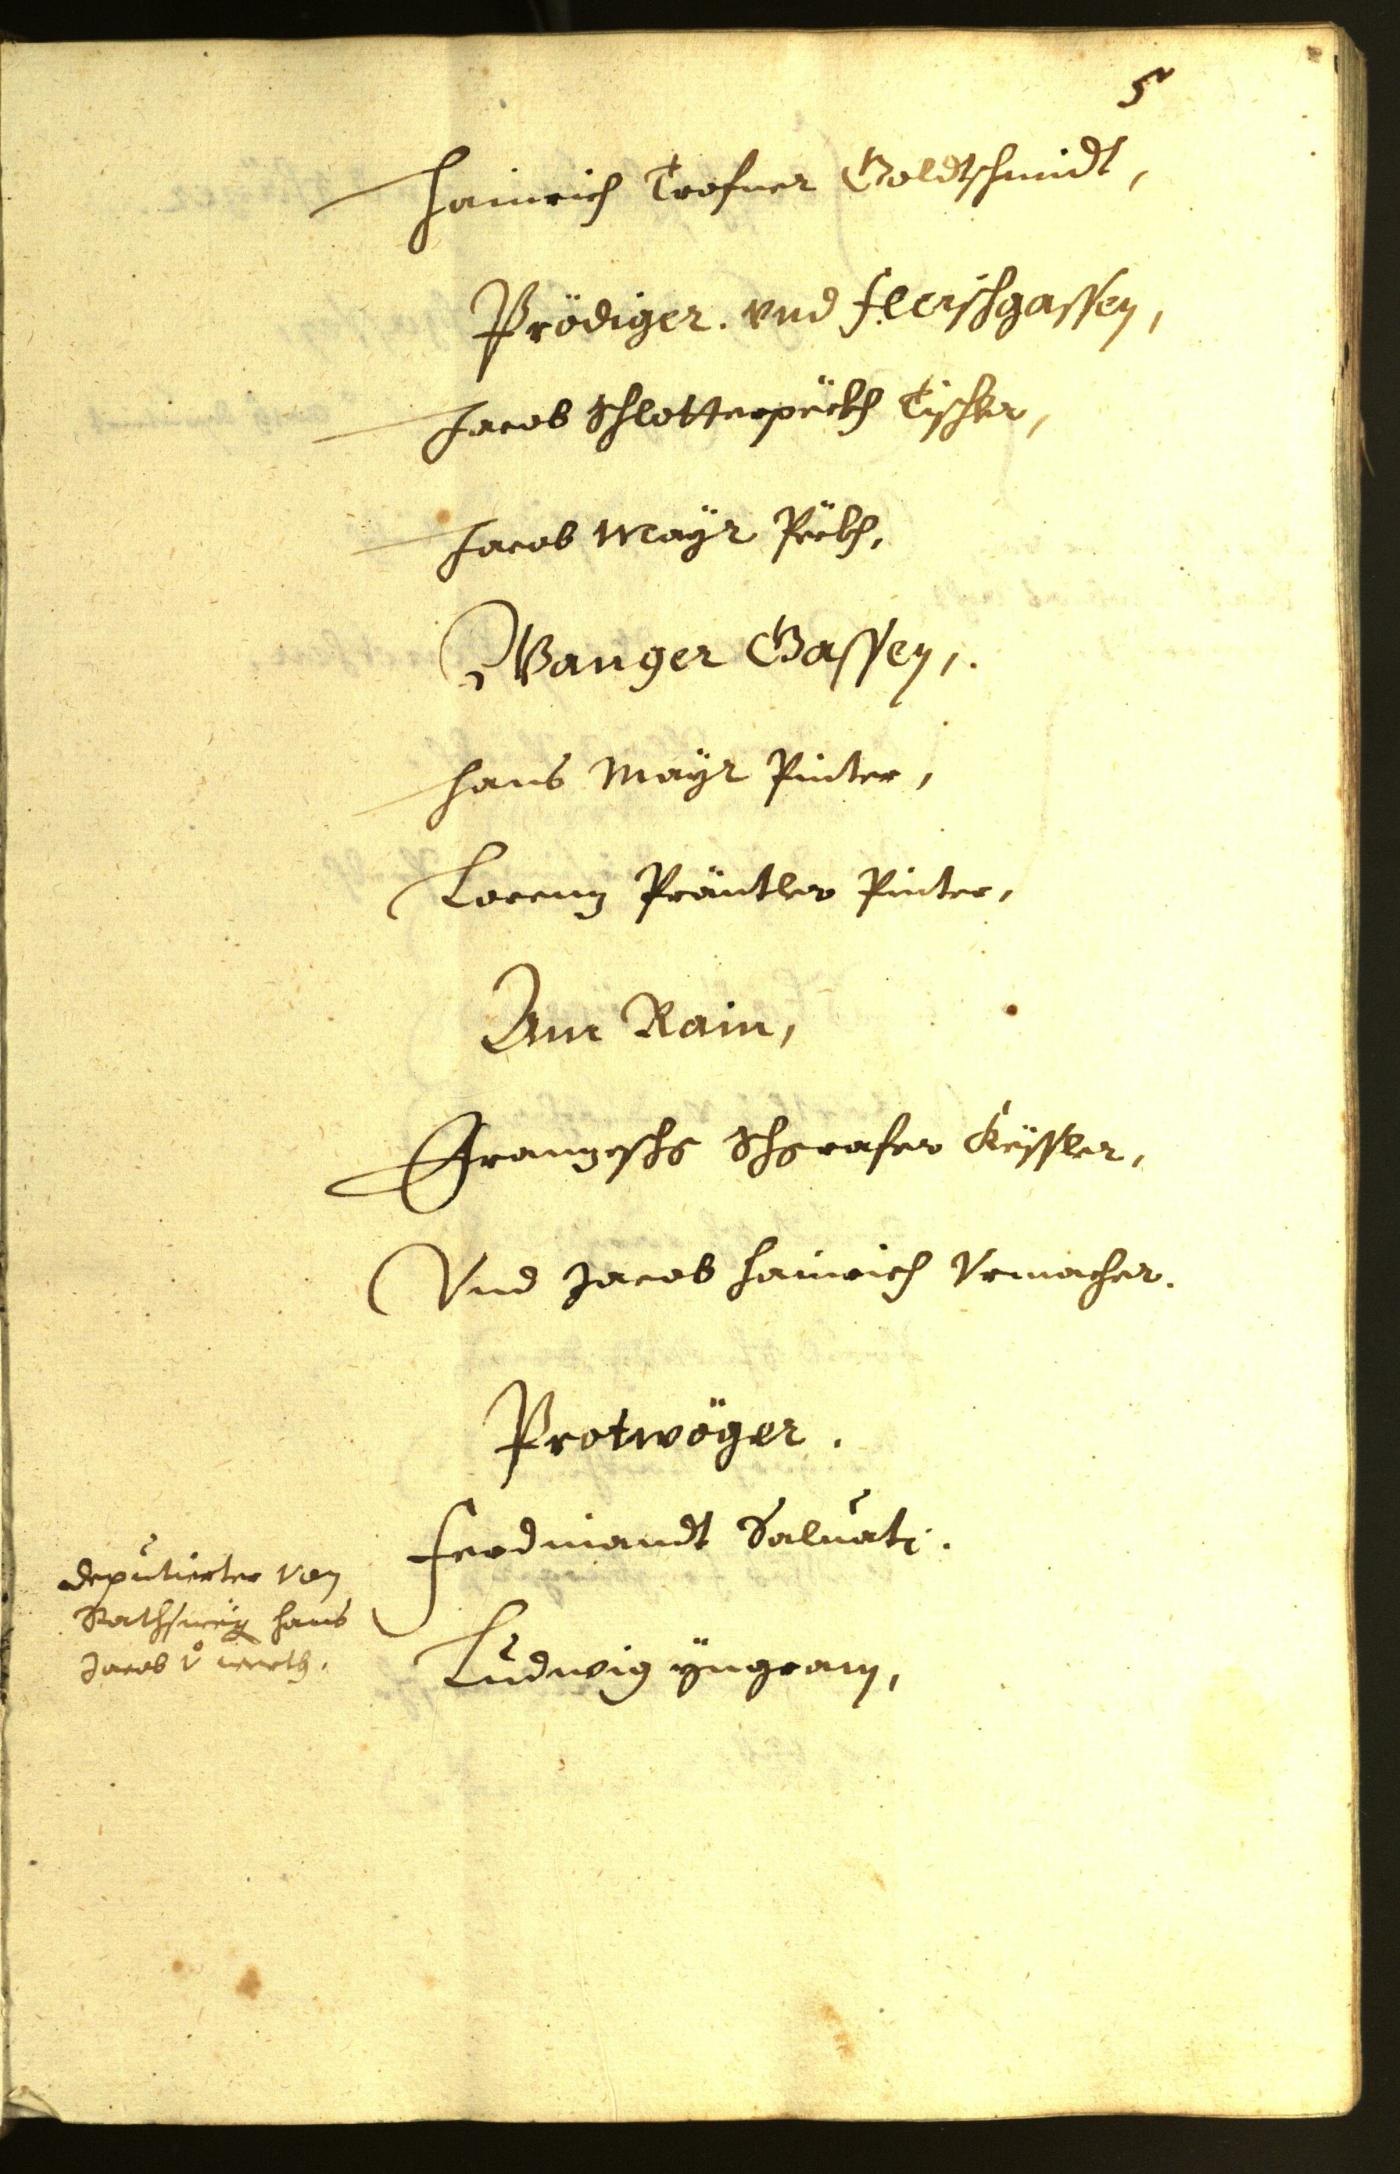 5
Hainrich Trofner Goldtschmidt,
Prödiger. vnd Fleischgassen,
Jacob Schlotterpöckh Tischler,
Jacob Mayr Pöckh,
Wanger Gassen,.
Hans Mayr Pinter,
Lorenz Präntler Pinter,
Am Rain,
Franzeschg Schgrafer Kössler,
Vnd Jacob Hainrich Vrmacher.
Protwöger.
Ferdinandt Saluati.
Ludwig yngram,
deputierter von
Raths Hans
Jacob v